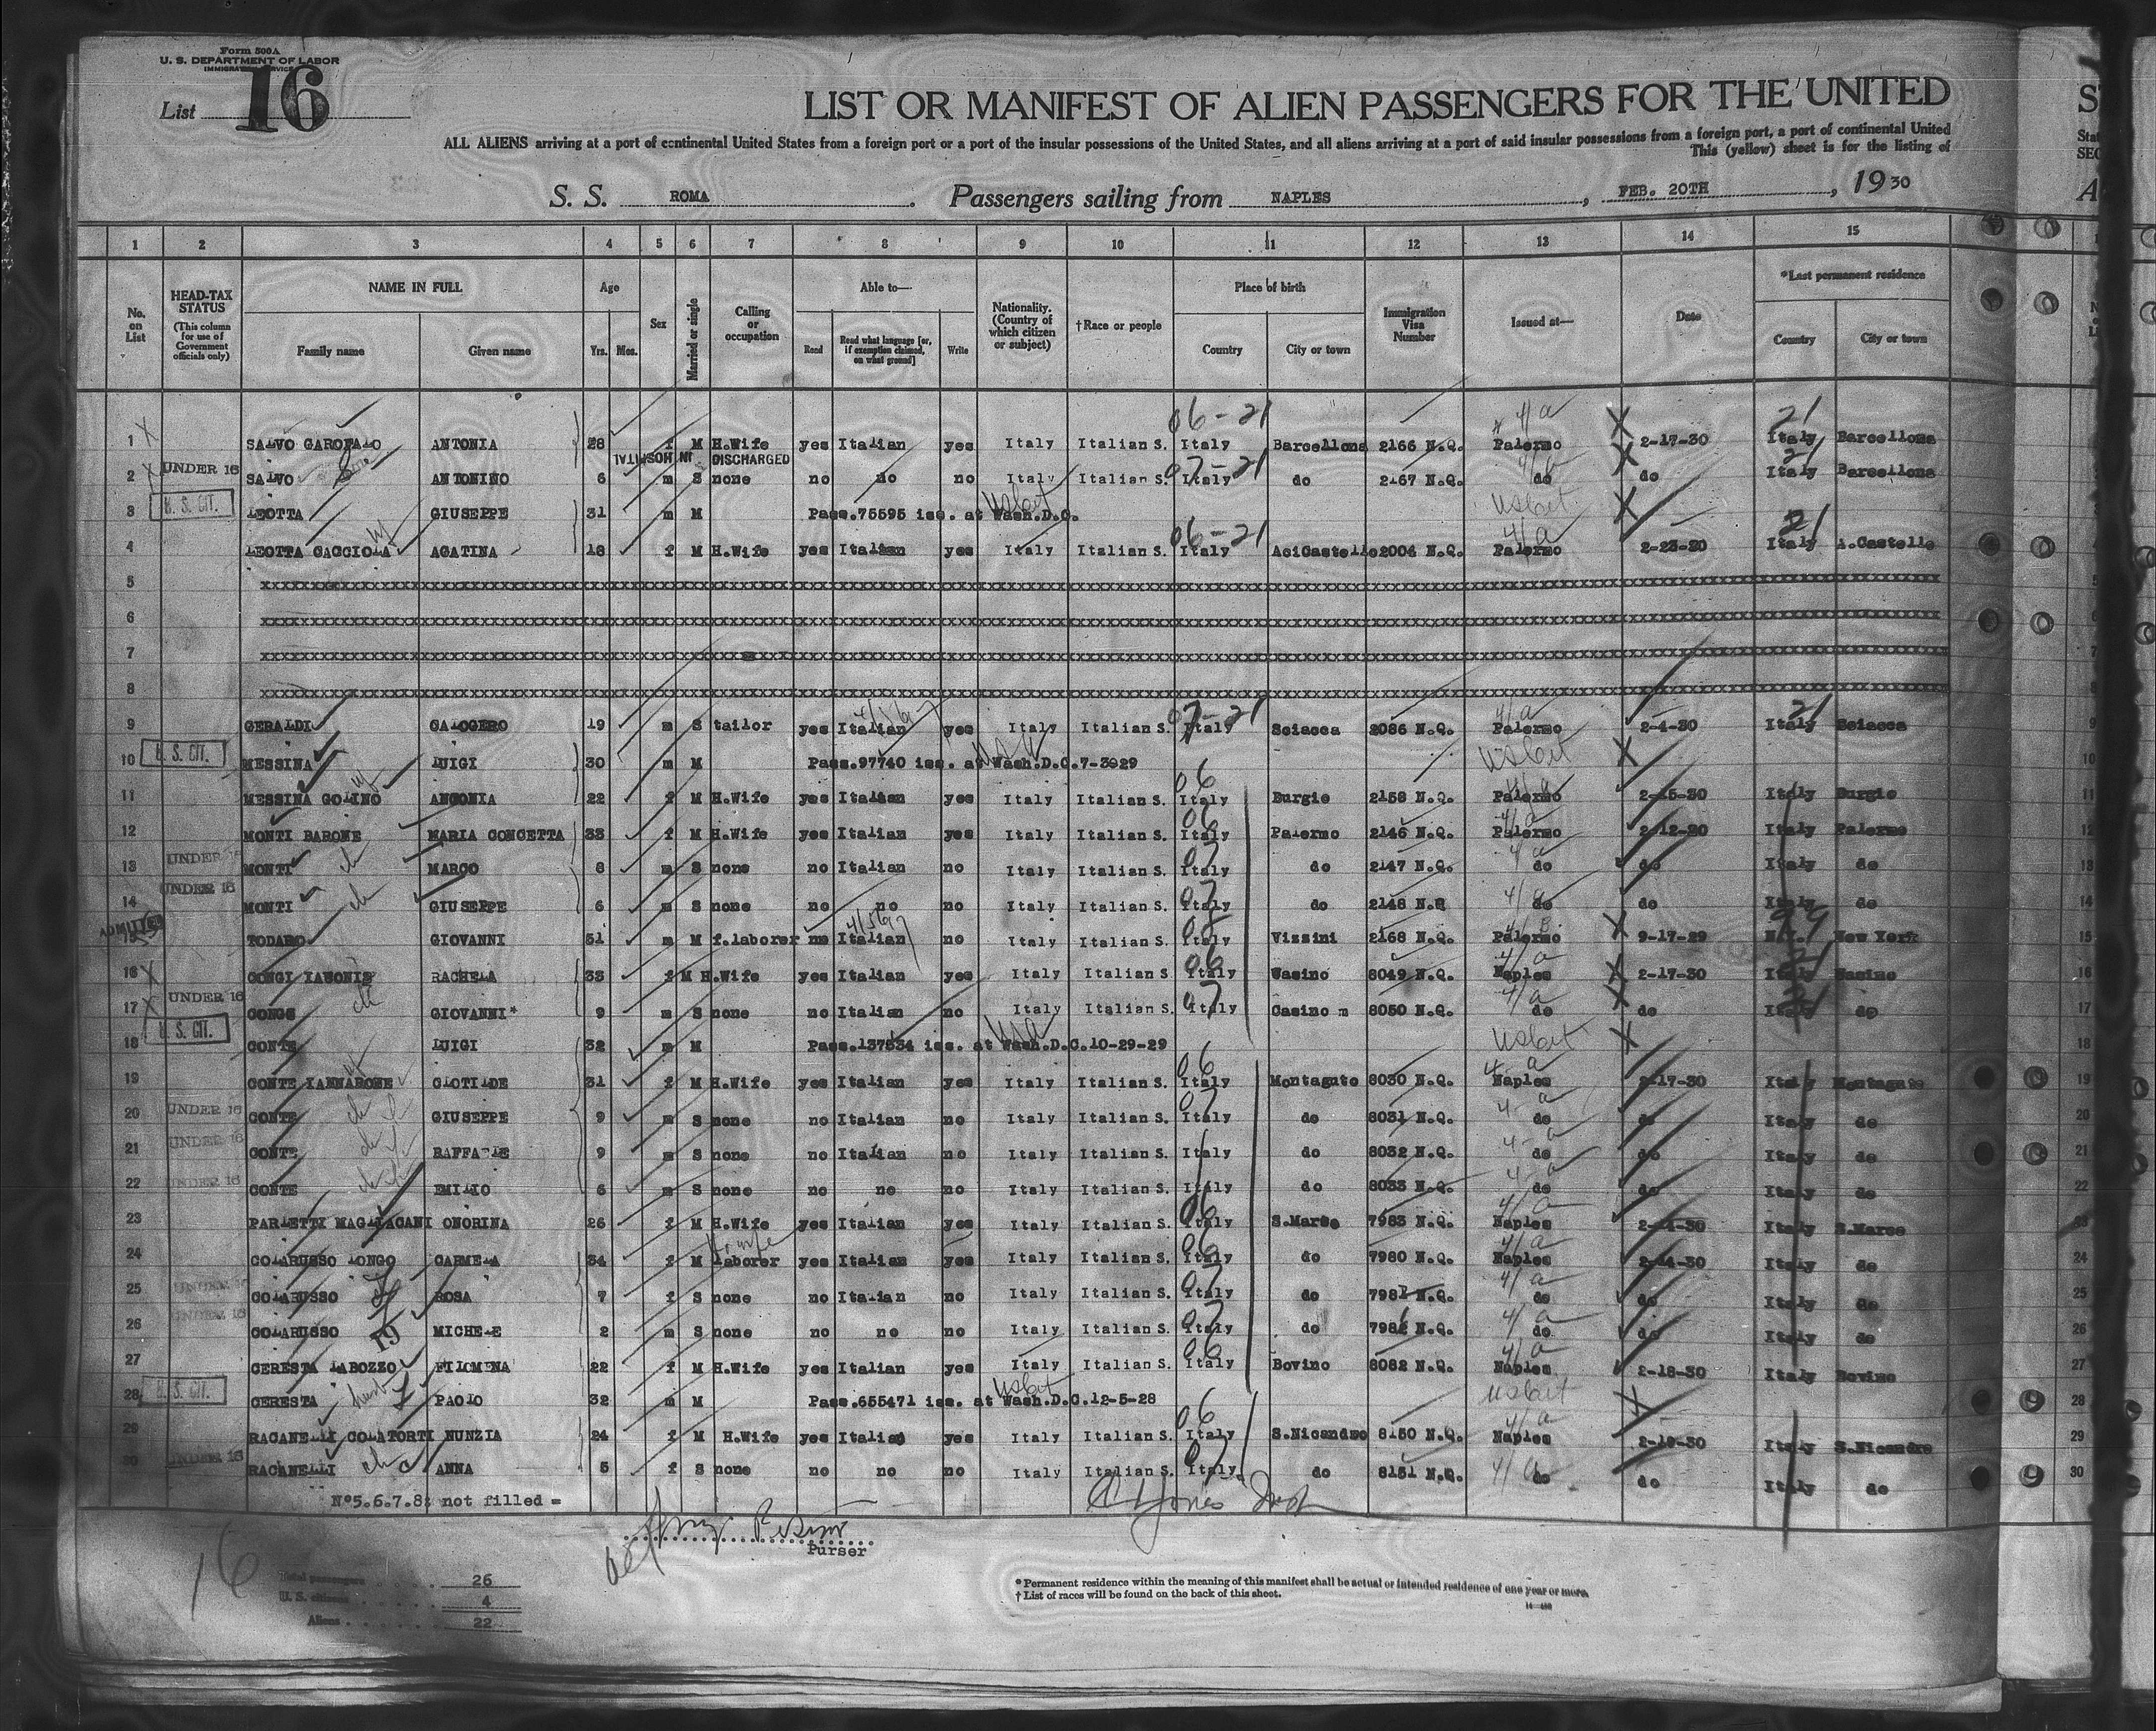 Form 500A
U. S. DEPARTMENT OF LABOR
IMMIGRATION SERVICE
List 16
LIST OR MANIFEST OF ALIEN PASSENGERS FOR THE UNITED
ALL ALIENS arriving at a port of continental United States from a foreign port or a port of the insular possessions of the United States, and all aliens arriving at a port of said insular possessions from a foreign port, a port of continental United
This (yellow) sheet is for the listing of
S. S. ROMA. Passengers sailing from NAPLES, FEB. 20TH, 1930
1 2 3 4 5 6 7 8 9 10 11 12 13 14 15
No. on List
HEAD-TAX STATUS (This column for use of Government officials only)
NAME IN FULL Family name Given name
Age Yrs. Mos.
Sex
Married or single
Calling or occupation
Able to— Read Read what language [or, if exemption claimed, on what ground] Write
Nationality. (Country of which citizen or subject)
†Race or people
Place of birth Country City or town
Immigration Visa Number
Issued at—
Date
*Last permanent residence Country City or town
06-21 4/a 21
1 SALVO GAROFALO ANTONIA 28 f M H.Wife yes Italian yes Italy Italian S. Italy Barcellona 2166 N.Q. Palermo 2-17-30 Italy Barcellona
IN HOSPITAL DISCHARGED 07-21
2 UNDER 16 SALVO ANTONINO 6 m S none no no no Italy Italian S. Italy do 2167 N.Q. do do Italy Barcellona
3 U. S. CIT. LEOTTA GIUSEPPE 31 m M Pass.75595 iss. at Wash.D.C.
06-21 4/a 21
4 LEOTTA CACCIOLA AGATINA 18 f M H.Wife yes Italian yes Italy Italian S. Italy AciCastello 2004 N.Q. Palermo 2-23-30 Italy A.Castello
5 xxxxxxxxxx
6 xxxxxxxxxx
7 xxxxxxxxxx
8 xxxxxxxxxx
07-21 4/a 21
9 GERALDI CALOGERO 19 m S tailor yes Italian yes Italy Italian S. Italy Sciacca 2086 N.Q. Palermo 2-4-30 Italy Sciacca
10 U. S. CIT. MESSINA LUIGI 30 m M Pass.97740 iss. at Wash.D.C.7-3029
11 MESSINA GOLINO ANGONIA 22 f M H.Wife yes Italian yes Italy Italian S. Italy Burgio 2158 N.Q. Palermo 2-15-30 Italy Burgio
12 MONTI BARONE MARIA CONCETTA 33 f M H.Wife yes Italian yes Italy Italian S. Italy Palermo 2146 N.Q. Palermo 2-12-30 Italy Palermo
13 UNDER 16 MONTI MARCO 8 m S none no Italian no Italy Italian S. Italy do 2147 N.Q. do do Italy do
14 UNDER 16 MONTI GIUSEPPE 6 m S none no no no Italy Italian S. Italy do 2148 N.Q do do Italy do
ADMITTED 15 TODARO GIOVANNI 51 m M f.laborer no Italian no Italy Italian S. Italy Vizzini 2168 N.Q. Palermo 9-17-29 N.Y. New York
16 CONGI IANONIE RACHELA 33 f M H.Wife yes Italian yes Italy Italian S. Italy Casino 8049 N.Q. Naples 2-17-30 Italy Casino
17 UNDER 16 CONGI GIOVANNI* 9 m S none no Italian no Italy Italian S. Italy Casino m 8050 N.Q. do do Italy do
18 U. S. CIT. CONTE LUIGI 32 m M Pass.137534 iss. at Wash.D.C.10-29-29
19 CONTE IANNARONE CLOTILDE 31 f M H.Wife yes Italian yes Italy Italian S. Italy Montaguto 8030 N.Q. Naples 2-17-30 Italy Montaguto
20 UNDER 16 CONTE GIUSEPPE 9 m S none no Italian no Italy Italian S. Italy do 8031 N.Q. do do Italy do
21 UNDER 16 CONTE RAFFAELE 9 m S none no Italian no Italy Italian S. Italy do 8032 N.Q. do do Italy do
22 UNDER 16 CONTE EMILIO 6 m S none no no no Italy Italian S. Italy do 8033 N.Q. do do Italy do
23 PARLETTI MAGLIACANI ONORINA 26 f M H.Wife yes Italian yes Italy Italian S. Italy S.Marco 7983 N.Q. Naples 2-14-30 Italy S.Marco
24 COLARUSSO LONGO CARMELA 34 f M laborer yes Italian yes Italy Italian S. Italy do 7980 N.Q. Naples 2-14-30 Italy do
25 UNDER 16 COLARUSSO ROSA 7 f S none no Italian no Italy Italian S. Italy do 7981 N.Q. do do Italy do
26 UNDER 16 COLARUSSO MICHELE 2 m S none no no no Italy Italian S. Italy do 7982 N.Q. do do Italy do
27 CERESTA LABOZZO FILOMENA 22 f M H.Wife yes Italian yes Italy Italian S. Italy Bovino 8082 N.Q. Naples 2-18-30 Italy Bovino
28 U. S. CIT. CERESTA PAOLO 32 m M Pass.655471 iss. at Wash.D.C.12-5-28
29 RACANELLI COLATORTI NUNZIA 24 f M H.Wife yes Italian yes Italy Italian S. Italy S.Nicandro 8150 N.Q. Naples 2-18-30 Italy S.Nicandro
30 UNDER 16 RACANELLI ANNA 5 f S none no no no Italy Italian S. Italy do 8151 N.Q. do do Italy do
N°5.6.7.8: not filled =
Purser
16
Total passengers 26
U. S. citizens 4
Aliens 22
* Permanent residence within the meaning of this manifest shall be actual or intended residence of one year or more.
† List of races will be found on the back of this sheet.